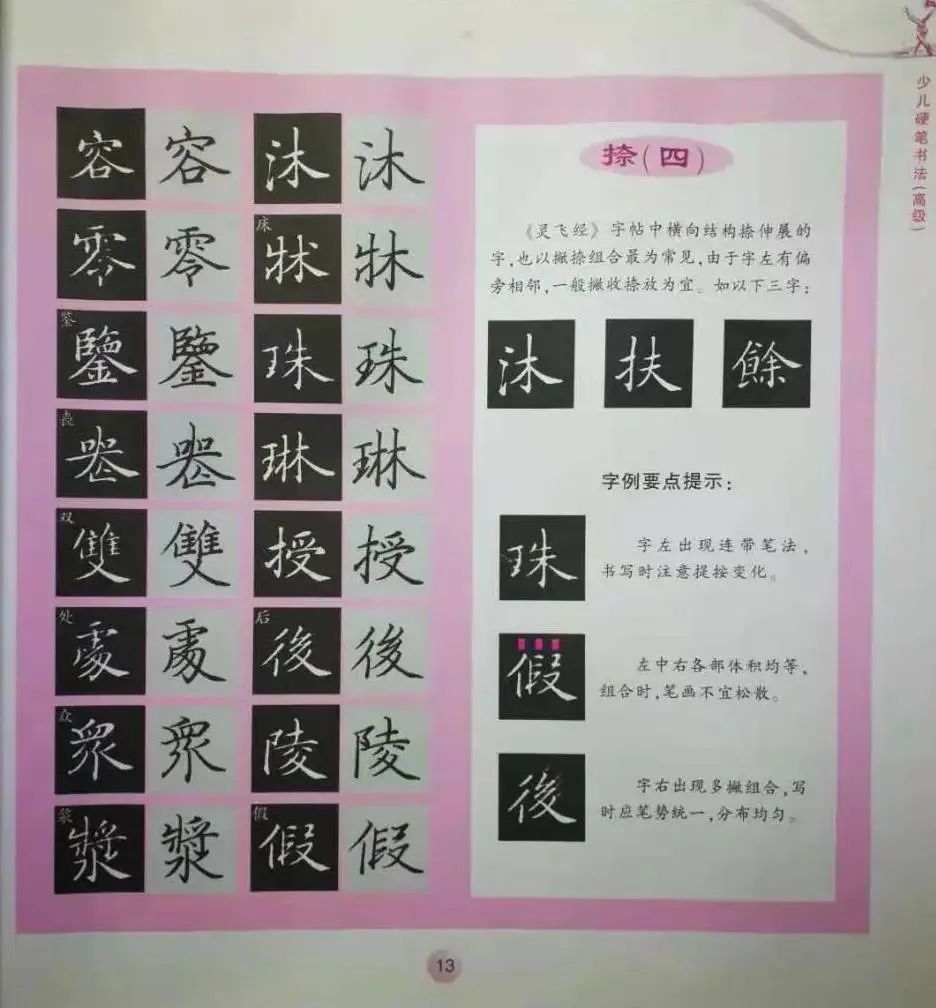 少儿硬笔书法(高级)
容 容 沐 沐
零 零 床 牀 牀
鉴 鑒 鑒 珠 珠
丧 琳 琳
双 雙 雙 授 授
处 處 處 后 後 後
众 眾 眾 陵 陵
浆 漿 漿 假 假 假
捺(四)
《灵飞经》字帖中横向结构捺伸展的
字,也以撇捺组合最为常见,由于字左有偏
旁相邻,一般撇收捺放为宜。如以下三字:
沐 扶 餘
字例要点提示:
珠
字左出现连带笔法,
书写时注意提按变化。
假
左中右各部体积均等,
组合时,笔画不宜松散。
後
字右出现多撇组合,写
时应笔势统一,分布均匀。
13